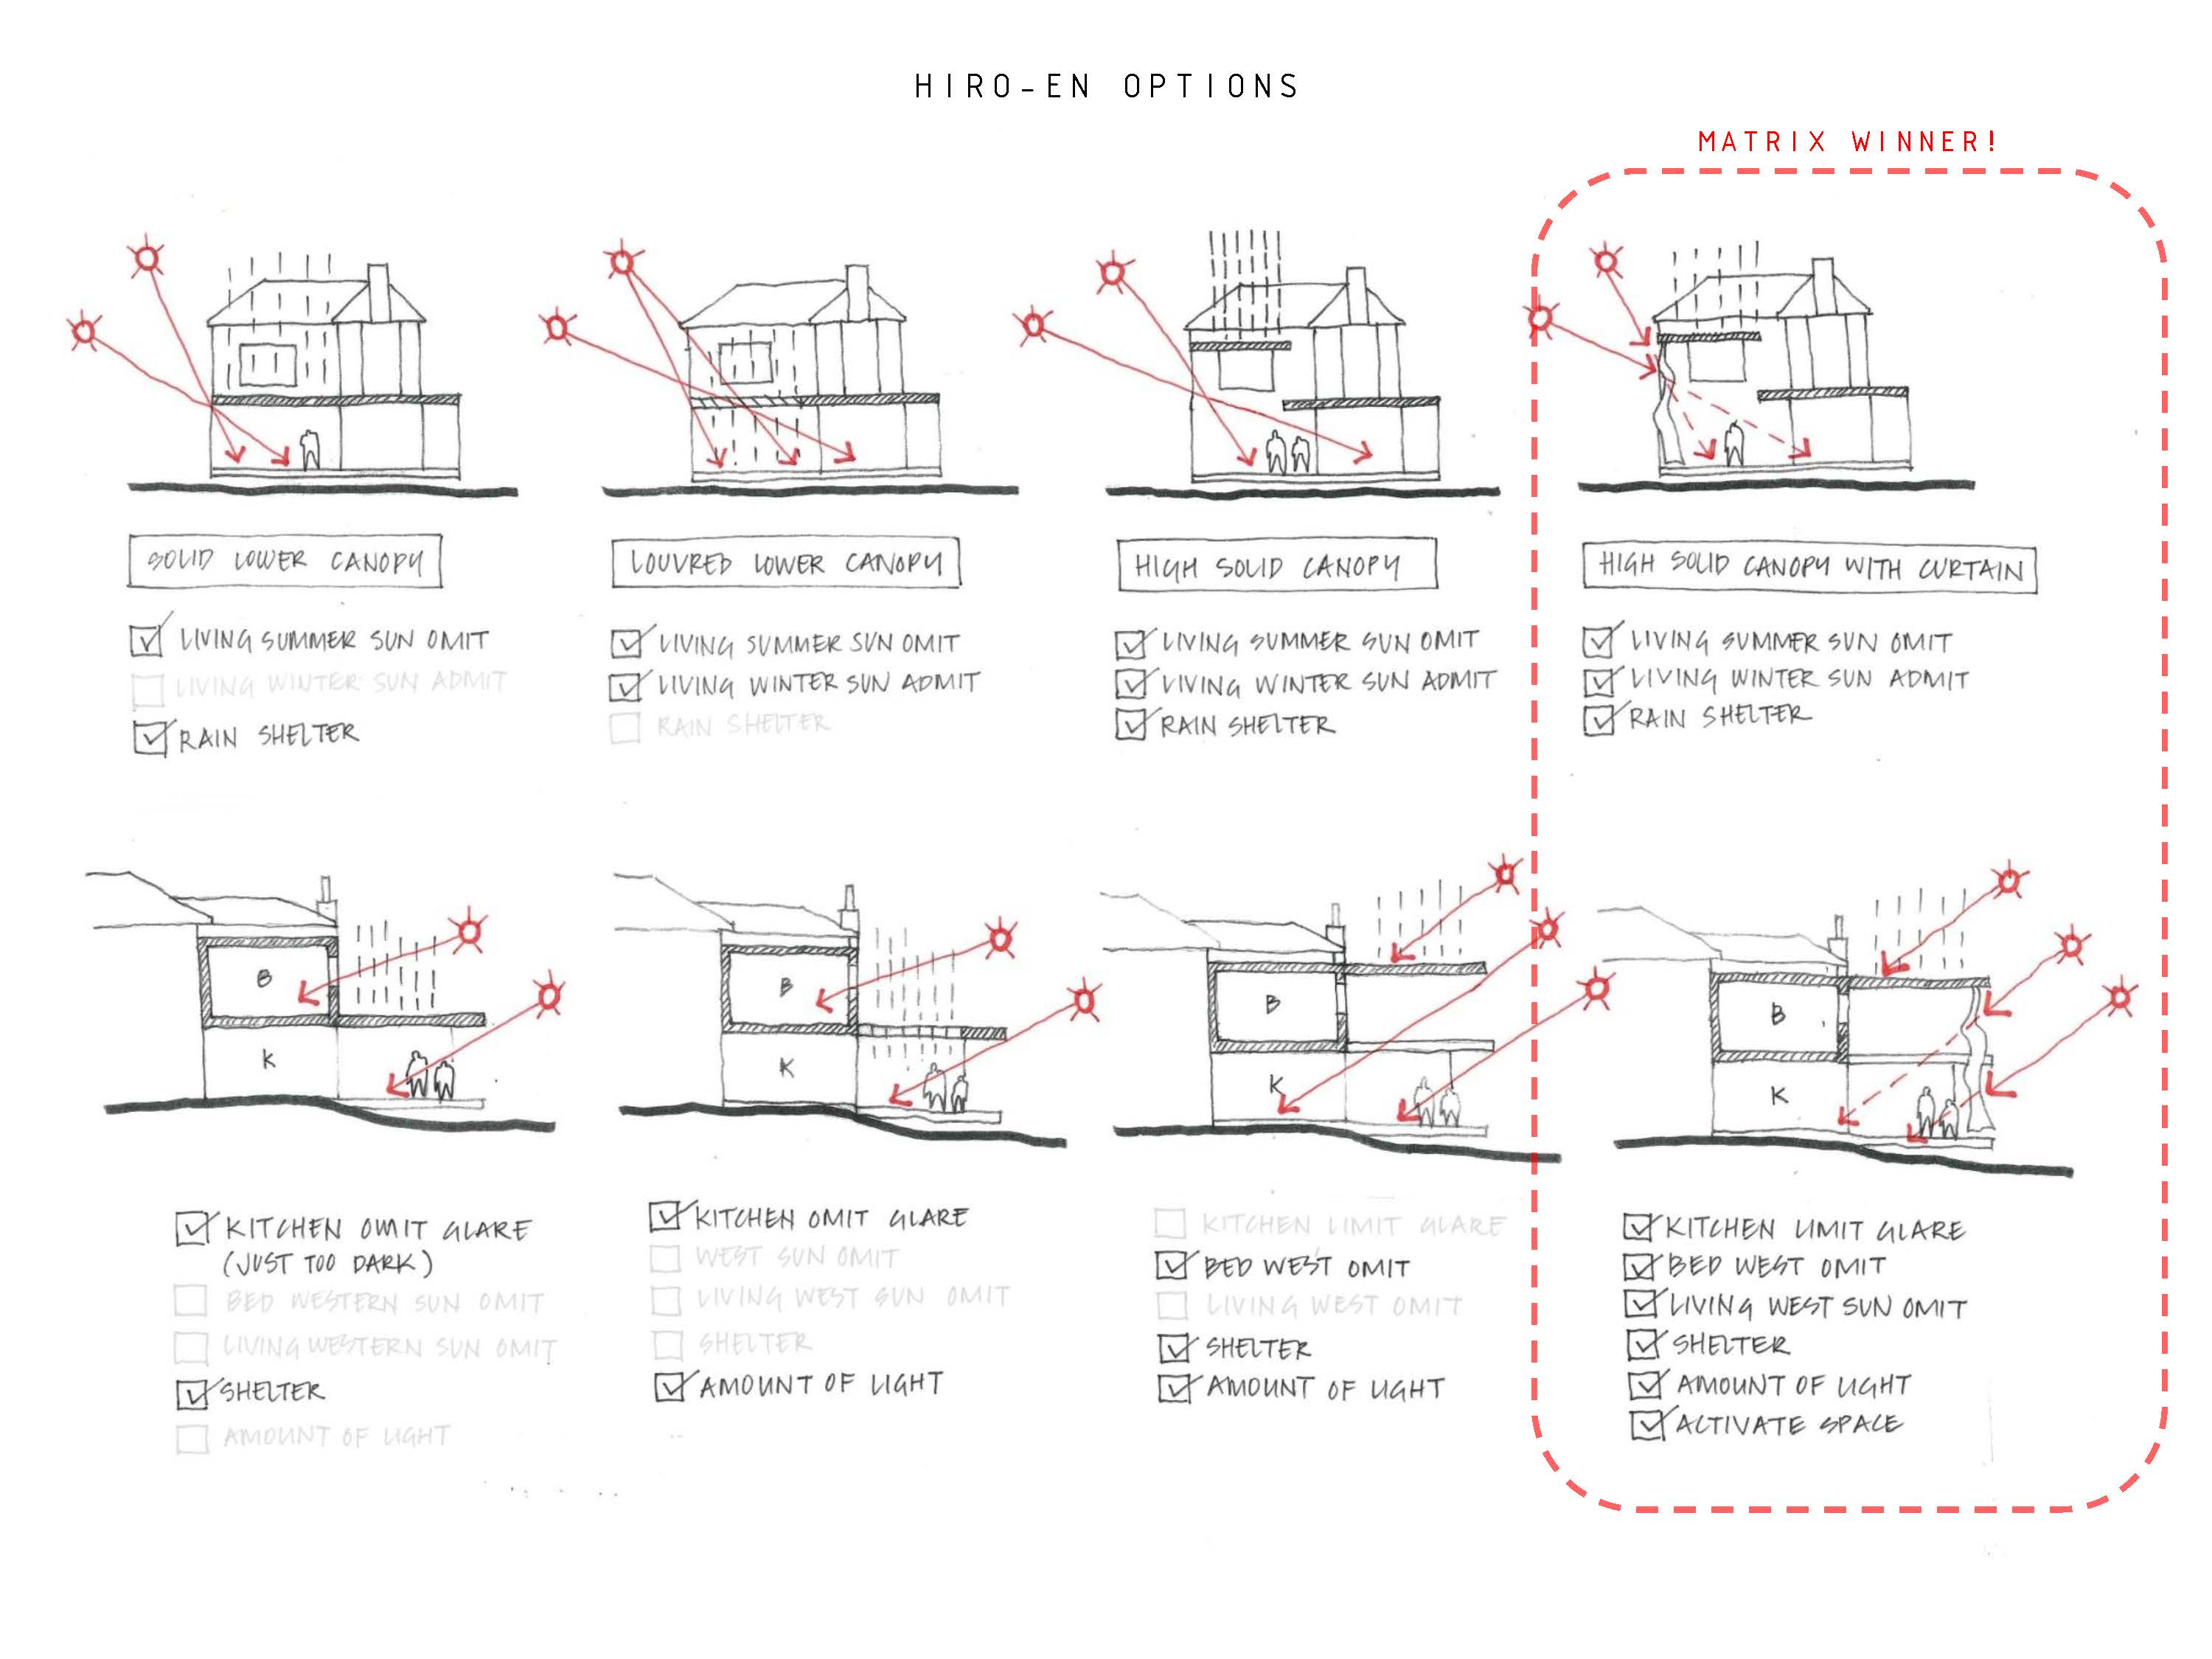 HIRO-EN OPTIONS
MATRIX WINNER!
SOLID LOWER CANOPY
LIVING SUMMER SUN OMIT
LIVING WINTER SUN ADMIT
RAIN SHELTER
LOUVRED LOWER CANOPY
LIVING SUMMER SUN OMIT
LIVING WINTER SUN ADMIT
RAIN SHELTER
HIGH SOLID CANOPY
LIVING SUMMER SUN OMIT
LIVING WINTER SUN ADMIT
RAIN SHELTER
HIGH SOLID CANOPY WITH CURTAIN
LIVING SUMMER SUN OMIT
LIVING WINTER SUN ADMIT
RAIN SHELTER
B
K
KITCHEN OMIT GLARE
(JUST TOO DARK)
BED WESTERN SUN OMIT
LIVING WESTERN SUN OMIT
SHELTER
AMOUNT OF LIGHT
B
K
KITCHEN OMIT GLARE
WEST SUN OMIT
LIVING WEST SUN OMIT
SHELTER
AMOUNT OF LIGHT
B
K
KITCHEN LIMIT GLARE
BED WEST OMIT
LIVING WEST OMIT
SHELTER
AMOUNT OF LIGHT
B
K
KITCHEN LIMIT GLARE
BED WEST OMIT
LIVING WEST SUN OMIT
SHELTER
AMOUNT OF LIGHT
ACTIVATE SPACE